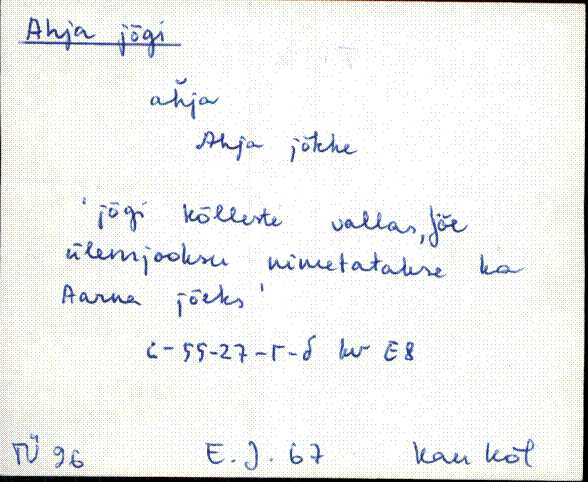 Ahja jõgi
ahja
Ahja jõkke
'jõgi Kõlleste vallas, jõe
ülemjooksu nimetatakse ka
Aarna jõeks'
C-55-27-Г-б kv E8
TÜ 96 E.J. 67 Kan Kõl